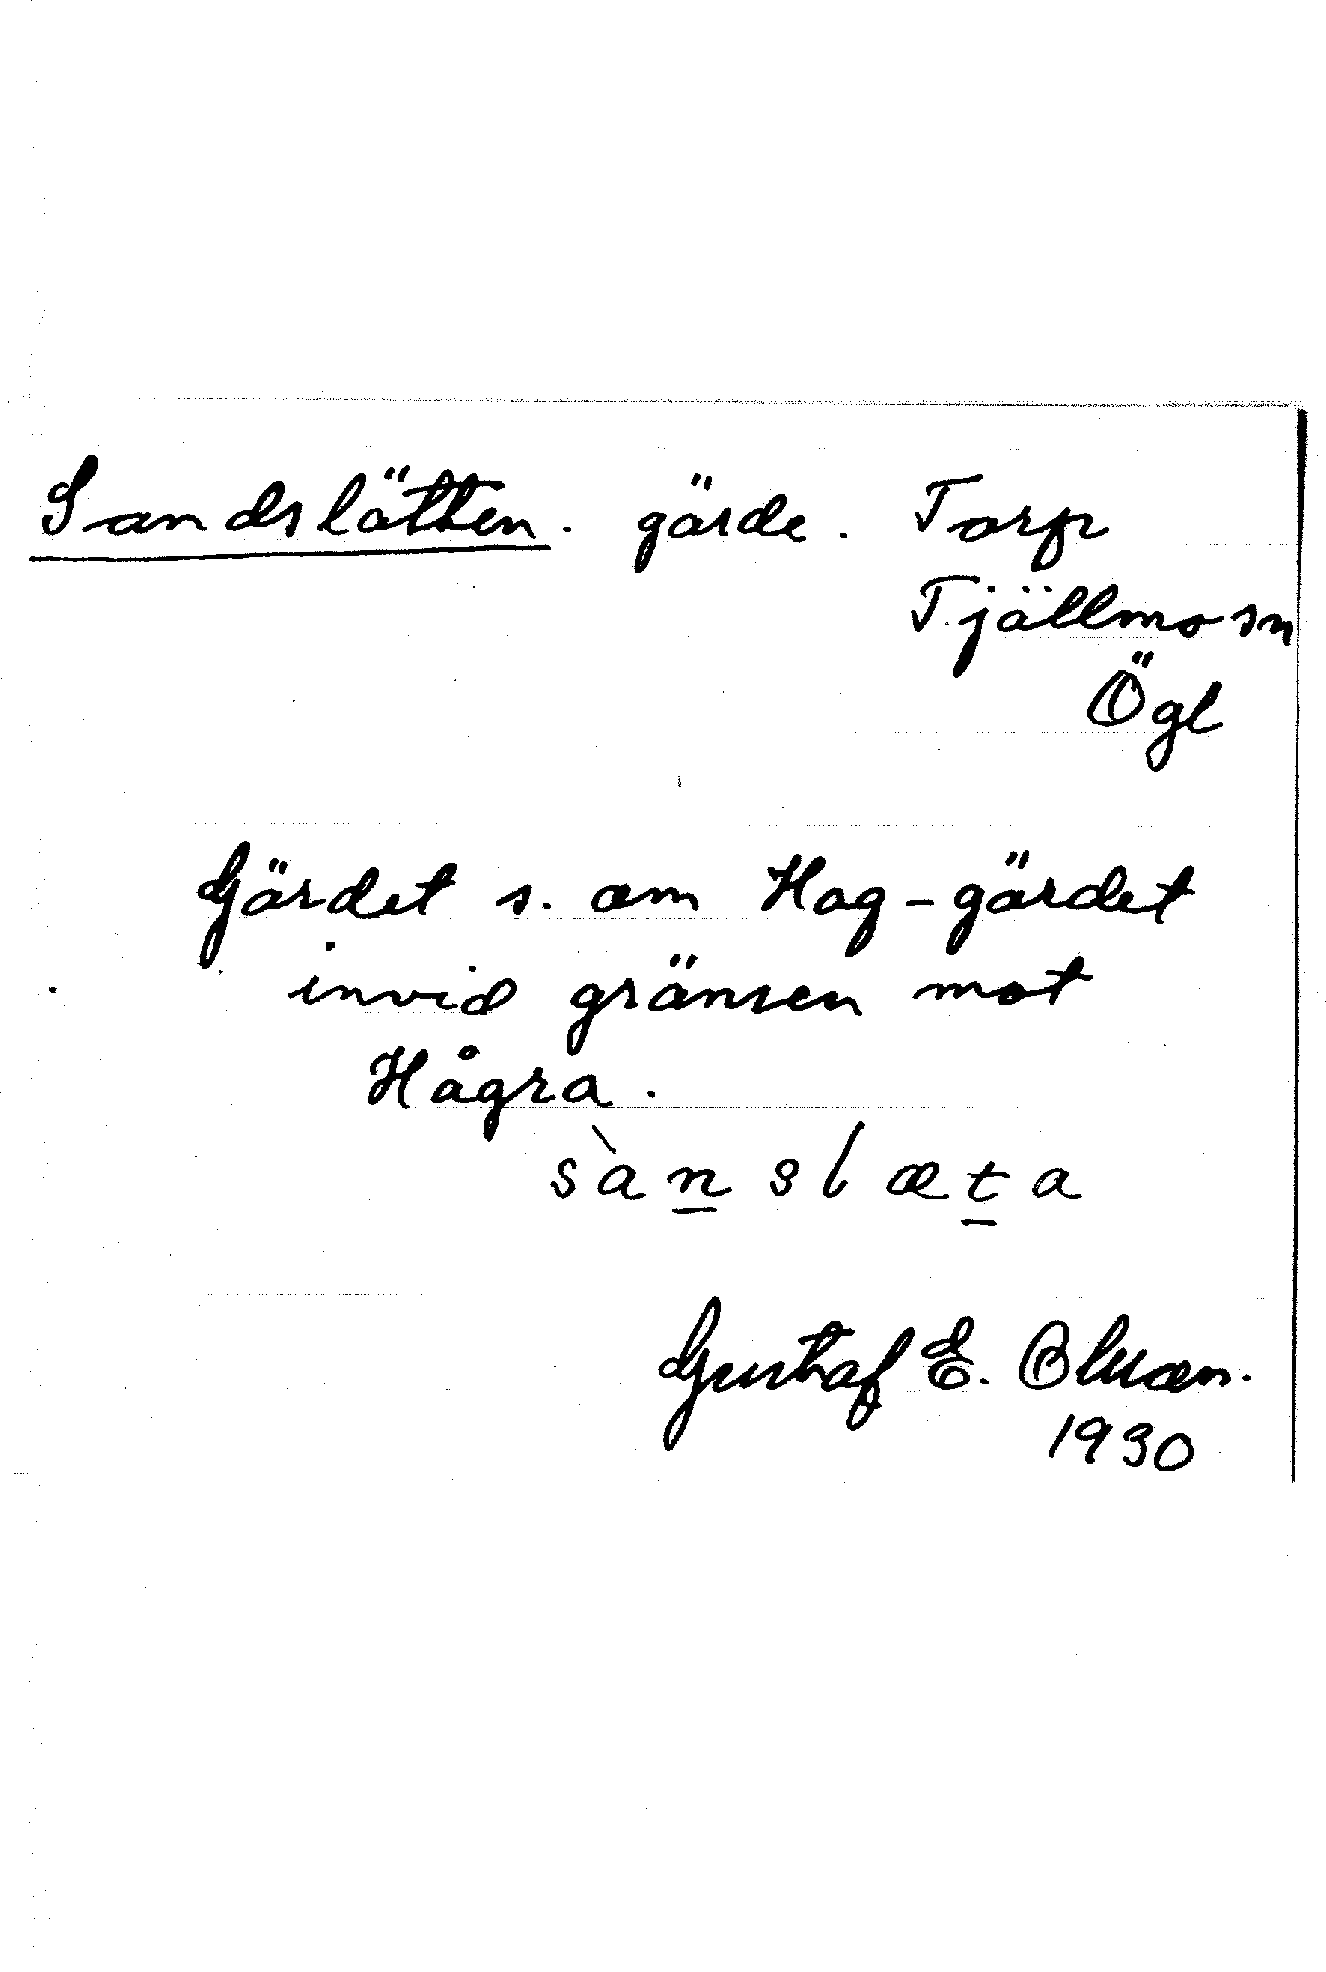 Sandslätten. gärde. Torp
Tjällmo sn
Ögl
Gärdet s. om Hag-gärdet
invid gränsen mot
Hågra.
sàn̲slæt̲a
Gustaf E. Olsson.
1930